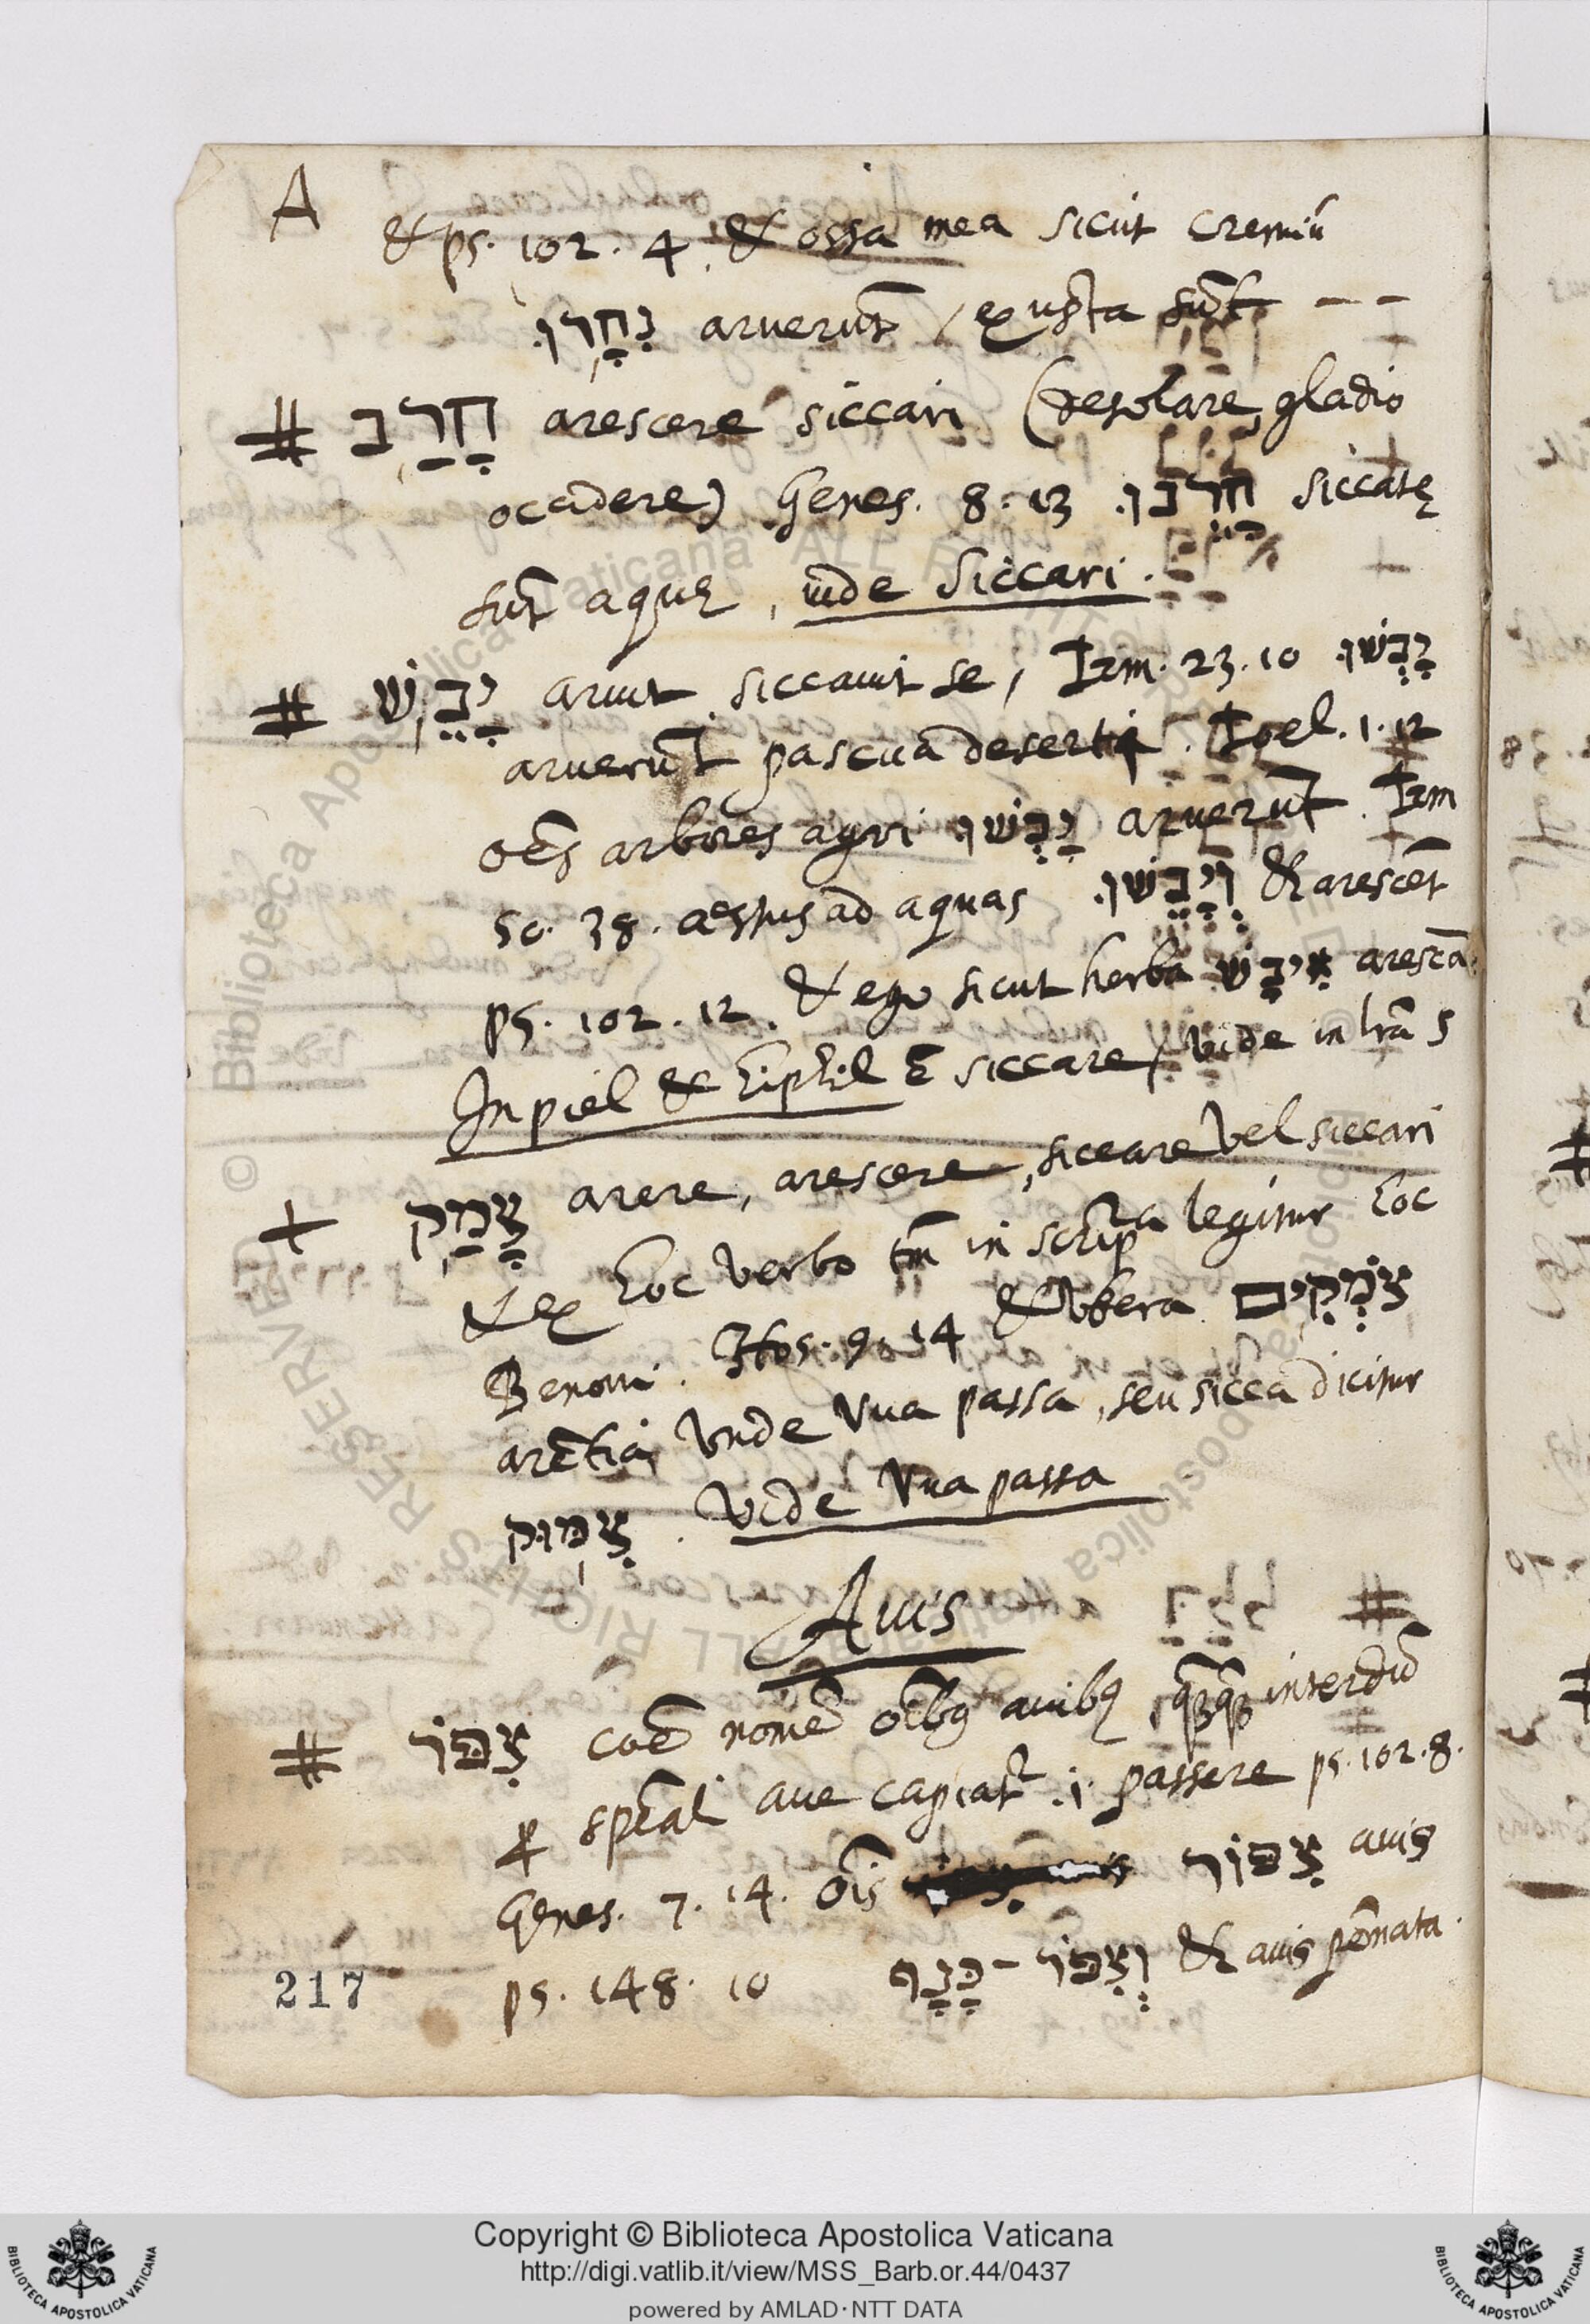 A
& ps. 102. 4. & ossa mea sicut cremiū
נִחָרוּ. aruerūt / exusta sūt - -
# חָרַב arescere siccari (desolare, gladio
occidere) Genes. 8. 13 חָרְבוּ. siccatę
sūt aquę, uide Siccari.
# יָבֵשׁ aruit siccauit se, Iem. 23. 10 יָבְשׁוּ.
aruerūt pascua deserti. Ioel. 1. 12
oēs arbores agri יָבֵשׁוּ aruerūt. Iem
50. 38. aestus ad aquas וְיָבֵשׁוּ. & arescēt
ps. 102. 12. & ego sicut herba אִיבָשׁ arescā.
In piel & hiphil ē siccare, vide in lrā S
+ צָמַק arere, arescere, siccare vel siccari
& ex hoc verbo tm̄ in scrip̄ra legitur hoc
Benoni. Hos. 9. 14 & vbera צֹמְקִים
arētia, vnde Vua passa, seu sicca dicitur
צִמּוּק. Vide Vua passa
Auis
# צִפּוֹר coē nomē oībus auibus, quāquā interdū
p spēali aue capiatur .i. passere ps. 102. 8.
Genes. 7. 14. oīs צִפּוֹר auis
217 ps. 148. 10 וְצִפּוֹר-כָּנָף & auis pēnata.
Copyright © Biblioteca Apostolica Vaticana
http://digi.vatlib.it/view/MSS_Barb.or.44/0437
powered by AMLAD·NTT DATA
BIBLIOTECA APOSTOLICA VATICANA
BIBLIOTECA APOSTOLICA VATICANA
© Biblioteca Apostolica Vaticana ALL RIGHTS RESERVED